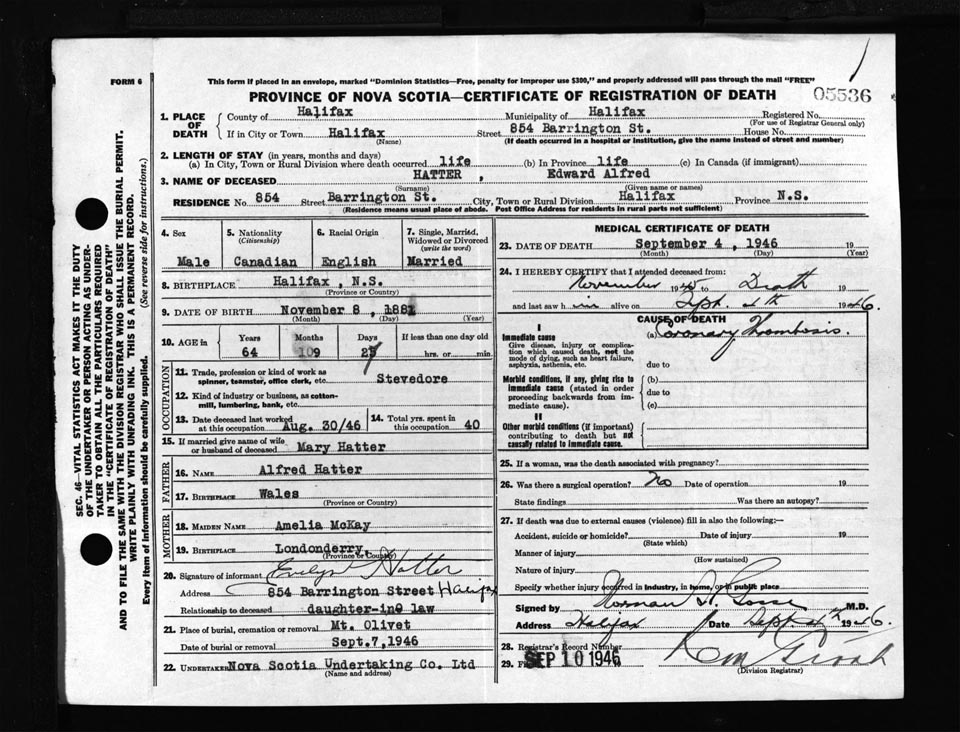 FORM 6
This form if placed in an envelope, marked "Dominion Statistics—Free, penalty for improper use $300," and properly addressed will pass through the mail "FREE"
PROVINCE OF NOVA SCOTIA—CERTIFICATE OF REGISTRATION OF DEATH
05536
1. PLACE OF DEATH
County of Halifax Municipality of Halifax Registered No.
(For use of Registrar General only)
If in City or Town Halifax Street 854 Barrington St. House No.
(Name) (If death occurred in a hospital or institution, give the name instead of street and number)
2. LENGTH OF STAY (in years, months and days)
(a) In City, Town or Rural Division where death occurred life (b) In Province life (c) In Canada (if immigrant)
3. NAME OF DECEASED HATTER , Edward Alfred
(Surname) (Given name or names)
RESIDENCE No. 854 Street Barrington St. City, Town or Rural Division Halifax Province N.S.
(Residence means usual place of abode. Post Office Address for residents in rural parts not sufficient)
4. Sex
Male
5. Nationality
(Citizenship)
Canadian
6. Racial Origin
English
7. Single, Married, Widowed or Divorced
(write the word)
Married
8. BIRTHPLACE Halifax, N.S.
(Province or Country)
9. DATE OF BIRTH November 8, 1881
(Month) (Day) (Year)
10. AGE in
Years Months Days If less than one day old
64 9 27 hrs. or min.
OCCUPATION
11. Trade, profession or kind of work as
spinner, teamster, office clerk, etc. Stevedore
12. Kind of industry or business, as cotton-
mill, lumbering, bank, etc.
13. Date deceased last worked
at this occupation Aug. 30/46
14. Total yrs. spent in
this occupation 40
15. If married give name of wife
or husband of deceased Mary Hatter
FATHER
16. NAME Alfred Hatter
17. BIRTHPLACE Wales
(Province or Country)
MOTHER
18. MAIDEN NAME Amelia McKay
19. BIRTHPLACE Londonderry,
(Province or Country)
20. Signature of informant Evelyn Hatter
Address 854 Barrington Street Halifax
Relationship to deceased daughter-in law
21. Place of burial, cremation or removal Mt. Olivet
Date of burial or removal Sept.7,1946
22. UNDERTAKER Nova Scotia Undertaking Co. Ltd
(Name and address)
MEDICAL CERTIFICATE OF DEATH
23. DATE OF DEATH September 4, 1946 19
(Month) (Day) (Year)
24. I HEREBY CERTIFY that I attended deceased from:
November 1945 to Death 19
and last saw him alive on Sept. 4th 1946
CAUSE OF DEATH
I
Immediate cause
Give disease, injury or complica-
tion which caused death, not the
mode of dying, such as heart failure,
asphyxia, asthenia, etc.
(a) Coronary Thrombosis.
due to
Morbid conditions, if any, giving rise to
immediate cause (stated in order
proceeding backwards from im-
mediate cause).
(b)
due to
(c)
II
Other morbid conditions (if important)
contributing to death but not
causally related to immediate cause.
25. If a woman, was the death associated with pregnancy?
26. Was there a surgical operation? No Date of operation 19
State findings Was there an autopsy?
27. If death was due to external causes (violence) fill in also the following:—
Accident, suicide or homicide? Date of injury 19
(State which)
Manner of injury
(How sustained)
Nature of injury
Specify whether injury occurred in industry, in home, or in public place
Signed by Norman H. Gosse M.D.
Address Halifax Date Sept 1946.
28. Registrar's Record Number
29. SEP 10 1946
(Division Registrar)
SEC. 46—VITAL STATISTICS ACT MAKES IT THE DUTY
OF THE UNDERTAKER OR PERSON ACTING AS UNDER-
TAKER TO OBTAIN ALL THE PARTICULARS REQUIRED
IN THE "CERTIFICATE OF REGISTRATION OF DEATH"
AND TO FILE THE SAME WITH THE DIVISION REGISTRAR WHO SHALL ISSUE THE BURIAL PERMIT.
WRITE PLAINLY WITH UNFADING INK. THIS IS A PERMANENT RECORD.
Every item of information should be carefully supplied. (See reverse side for instructions.)